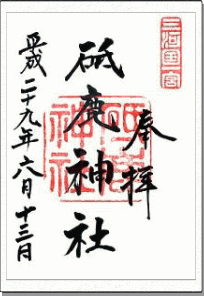 三河国一宮
奉拝
砥鹿神社
砥鹿神社
平成二十九年六月十三日